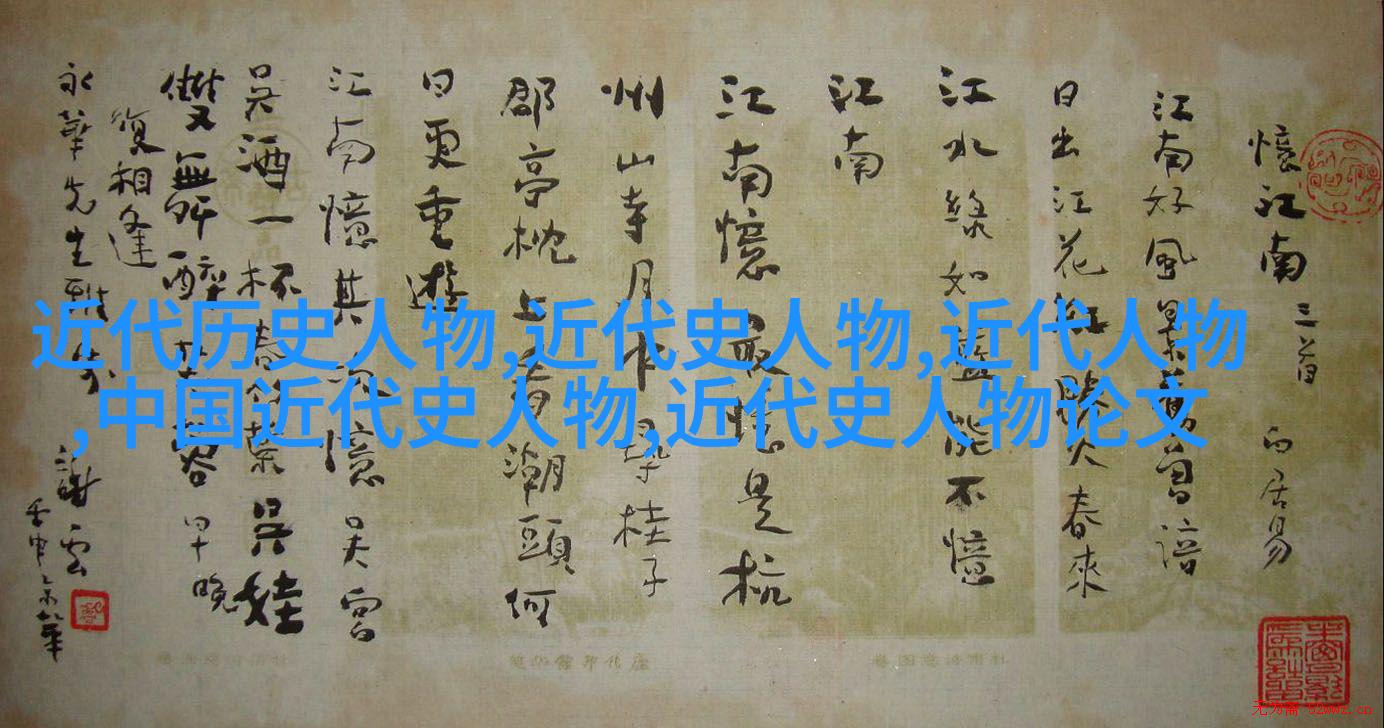 憶江南 三首
白居易
江南好風景舊曽諳
日出江花紅勝火春來
江水綠如藍能不憶
江南
江南憶最憶是杭
州山寺月中尋桂子
郡亭枕上看潮頭何
日更重遊
江南憶其次憶吳宮
吳酒一杯春竹葉吳娃
雙舞醉芙蓉早晚
復相逢
永華先生雅
謝雲
壬申
近代历史人物,近代史人物,近代人物
,中国近代史人物,近代史人物论文